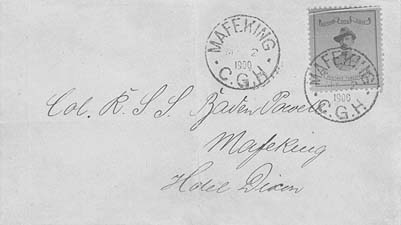 MAFEKING
2
1900
C.G.H.
MAFEKING
1900
C.G.H.
Col. R. S. S. Baden Powell
Mafeking
Hotel Dixon